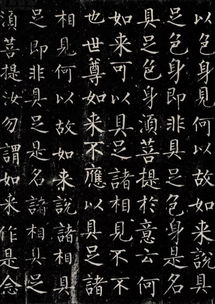 足色身即非具足色身是名
具足色身須菩提於意云何
如來可以具足諸相見不不
也世尊如來不應以具足諸
相見何以故如來說諸相具
足即非具足是名諸相具足
須菩提汝勿謂如來作是念